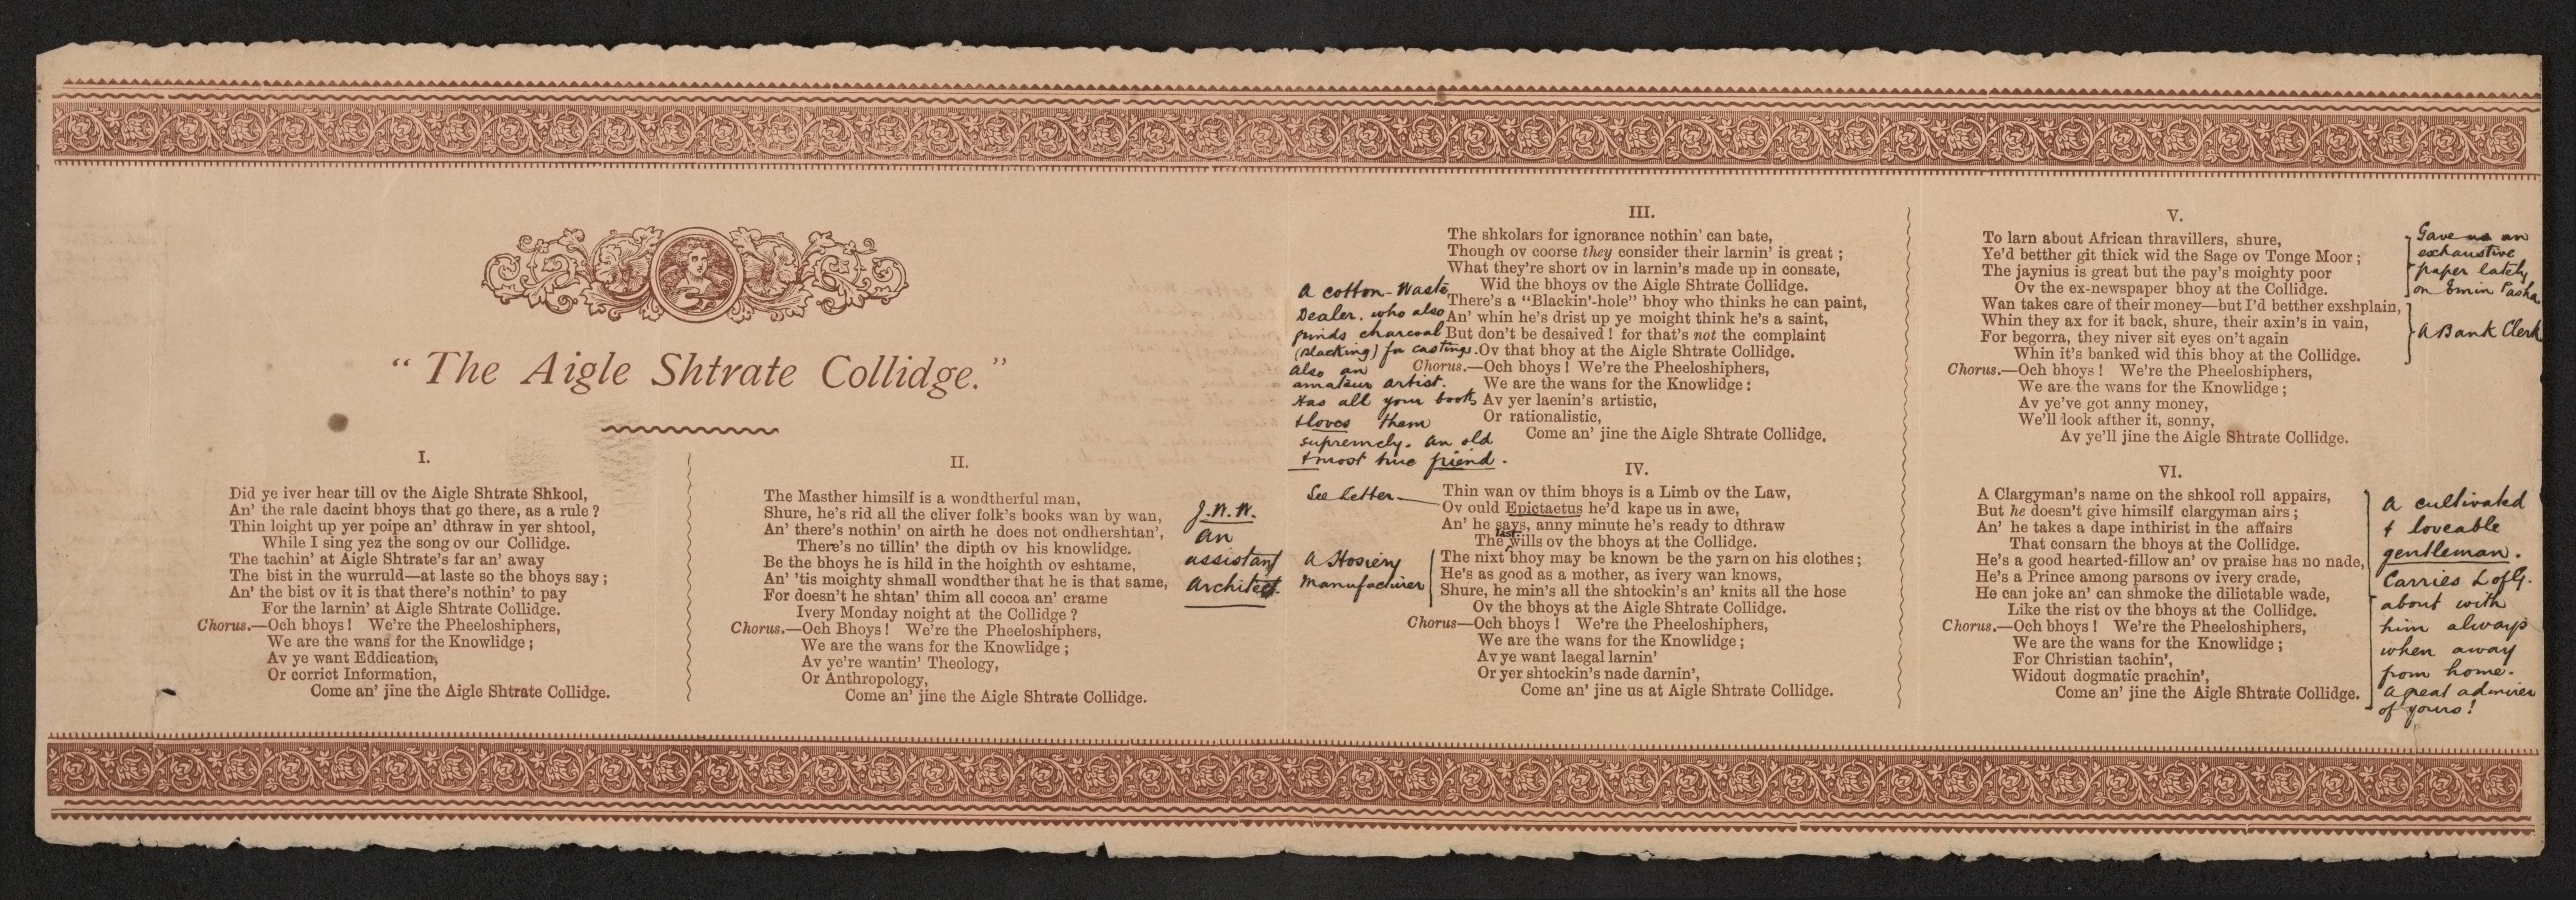 "The Aigle Shtrate Collidge."
I.
Did ye iver hear till ov the Aigle Shtrate Shkool,
An' the rale dacint bhoys that go there, as a rule?
Thin loight up yer poipe an' dthraw in yer shtool,
While I sing yez the song ov our Collidge.
The tachin' at Aigle Shtrate's far an' away
The bist in the wurruld—at laste so the bhoys say;
An' the bist ov it is that there's nothin' to pay
For the larnin' at Aigle Shtrate Collidge.
Chorus.—Och bhoys! We're the Pheeloshiphers,
We are the wans for the Knowlidge;
Av ye want Eddication,
Or corrict Information,
Come an' jine the Aigle Shtrate Collidge.
II.
The Masther himsilf is a wondtherful man,
Shure, he's rid all the cliver folk's books wan by wan,
An' there's nothin' on airth he does not ondhershtan',
There's no tillin' the dipth ov his knowlidge.
Be the bhoys he is hild in the hoighth ov eshtame,
An' 'tis moighty shmall wondther that he is that same,
For doesn't he shtan' thim all cocoa an' crame
Ivery Monday noight at the Collidge?
Chorus.—Och Bhoys! We're the Pheeloshiphers,
We are the wans for the Knowlidge;
Av ye're wantin' Theology,
Or Anthropology,
Come an' jine the Aigle Shtrate Collidge.
J.W.W.
an
assistant
Architect.
III.
The shkolars for ignorance nothin' can bate,
Though ov coorse they consider their larnin' is great;
What they're short ov in larnin's made up in consate,
Wid the bhoys ov the Aigle Shtrate Collidge.
There's a "Blackin'-hole" bhoy who thinks he can paint,
An' whin he's drist up ye moight think he's a saint,
But don't be desaived! for that's not the complaint
Ov that bhoy at the Aigle Shtrate Collidge.
Chorus.—Och bhoys! We're the Pheeloshiphers,
We are the wans for the Knowlidge:
Av yer laenin's artistic,
Or rationalistic,
Come an' jine the Aigle Shtrate Collidge.
A cotton-Waste
Dealer. who also
grinds charcoal
(Blacking) for castings.
Also an
amateur artist.
Has all your books
& loves them
supremely. An old
& most true friend.
IV.
Thin wan ov thim bhoys is a Limb ov the Law,
Ov ould Epictaetus he'd kape us in awe,
An' he says, anny minute he's ready to dthraw
The last wills ov the bhoys at the Collidge.
The nixt bhoy may be known be the yarn on his clothes;
He's as good as a mother, as ivery wan knows,
Shure, he min's all the shtockin's an' knits all the hose
Ov the bhoys at the Aigle Shtrate Collidge.
Chorus—Och bhoys! We're the Pheeloshiphers,
We are the wans for the Knowlidge;
Av ye want laegal larnin'
Or yer shtockin's nade darnin',
Come an' jine us at Aigle Shtrate Collidge.
See letter
A Hosiery
Manufacturer
V.
To larn about African thravillers, shure,
Ye'd betther git thick wid the Sage ov Tonge Moor;
The jaynius is great but the pay's moighty poor
Ov the ex-newspaper bhoy at the Collidge.
Wan takes care of their money—but I'd betther exshplain,
Whin they ax for it back, shure, their axin's in vain,
For begorra, they niver sit eyes on't again
Whin it's banked wid this bhoy at the Collidge.
Chorus.—Och bhoys! We're the Pheeloshiphers,
We are the wans for the Knowlidge;
Av ye've got anny money,
We'll look afther it, sonny,
Av ye'll jine the Aigle Shtrate Collidge.
Gave us an
exhaustive
paper lately
on Emin Pasha
A Bank Clerk
VI.
A Clargyman's name on the shkool roll appairs,
But he doesn't give himsilf clargyman airs;
An' he takes a dape inthirist in the affairs
That consarn the bhoys at the Collidge.
He's a good hearted-fillow an' ov praise has no nade,
He's a Prince among parsons ov ivery crade,
He can joke an' can shmoke the dilictable wade,
Like the rist ov the bhoys at the Collidge.
Chorus.—Och bhoys! We're the Pheeloshiphers,
We are the wans for the Knowlidge;
For Christian tachin',
Widout dogmatic prachin',
Come an' jine the Aigle Shtrate Collidge.
A cultivated
& loveable
gentleman.
Carries L of G.
about with
him always
when away
from home.
A great admirer
of yours!